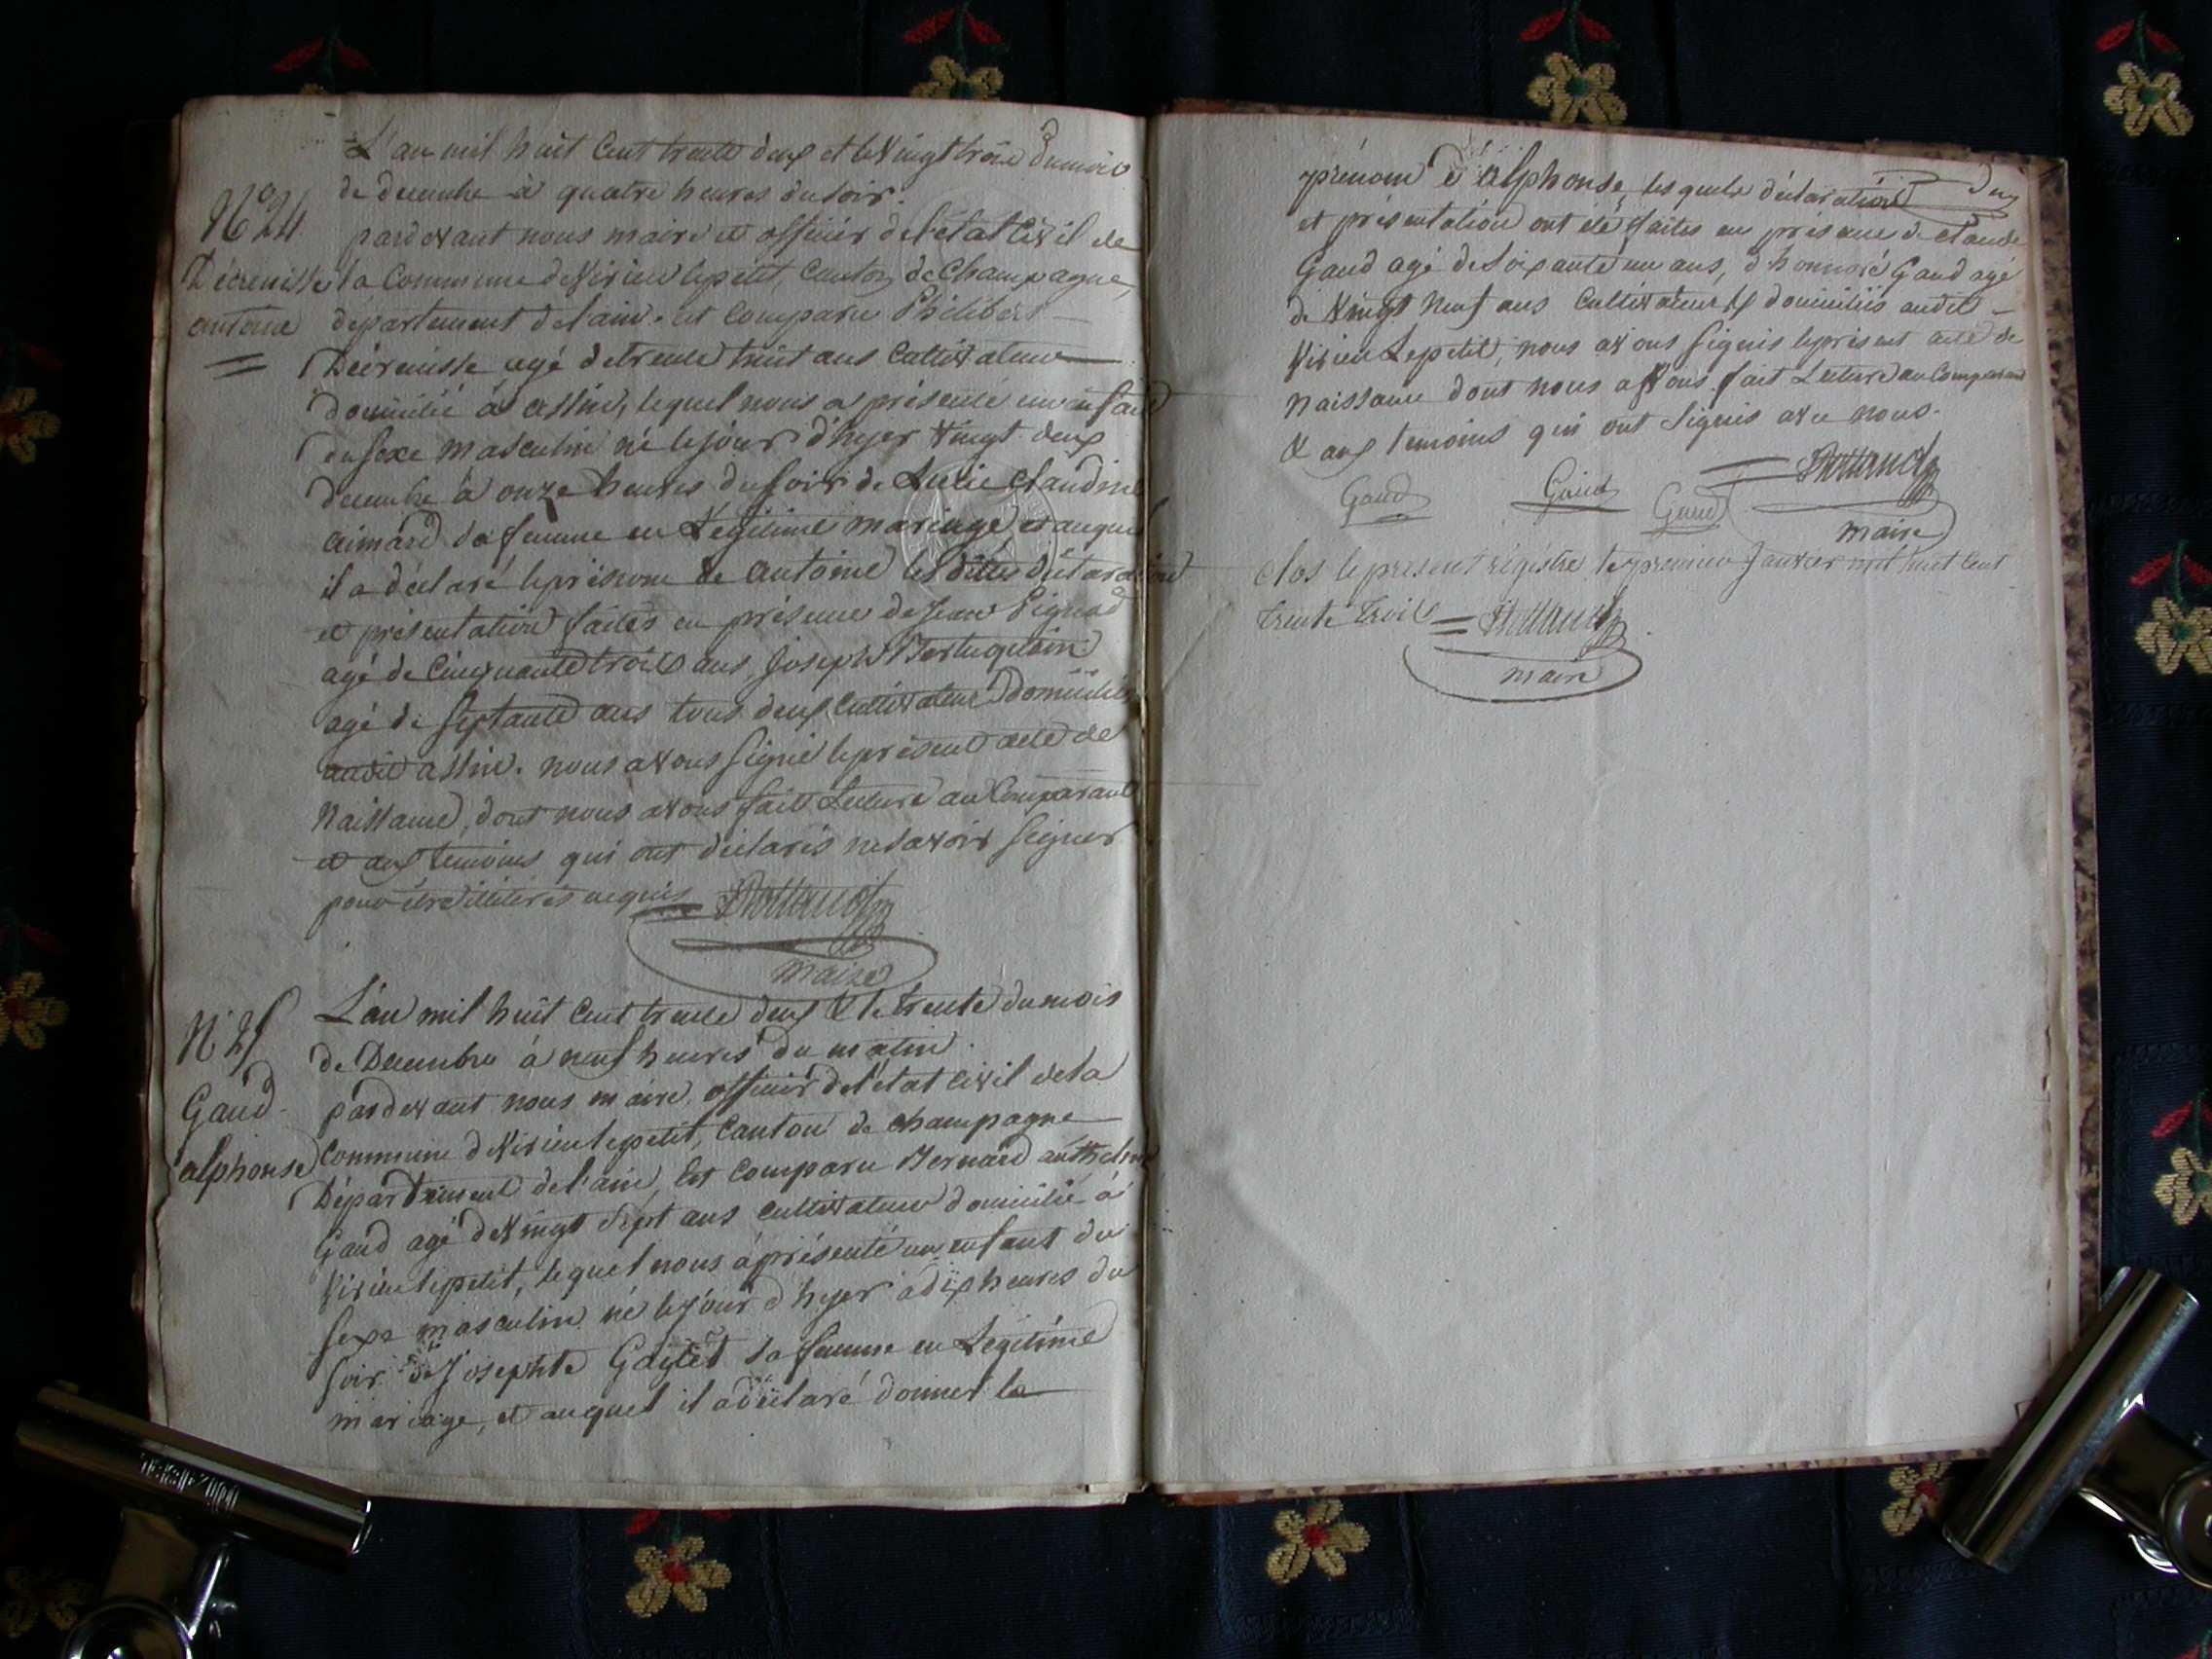 L'an mil huit Cent trente deux et le Vingt trois du mois
de decembre à quatre heures du soir.
N° 24
pardevant nous maire et officier de l'état Civil de
Décreuisse
la Commune de Virieu lepetit, Canton de Champagne,
antoine
département de l'ain. est Comparu Philibert
Décreuisse agé de trente huit ans Cultivateur
domicilié à assin, lequel nous a présenté un enfant
du sexe masculin né le jour d'hyer Vingt deux
decembre à onze heures du soir de Lucie Claudine
aimard sa femme en Légitime mariage, et auquel
il a déclaré le prénom de antoine les dittes déclaration
et présentation faites en présence de Jean Pignod
agé de Cinquante trois ans, Joseph
agé de septante ans tous deux Cultivateurs domiciliés
audit assin. nous avons signé le présent acte de
Naissance, dont nous avons fait Lecture au Comparant
et aux temoins qui ont déclarés ne savoir signer
pour être illitérés requis
maire
N° 25
L'an mil huit Cent trente deux & le trente du mois
de Decembre à neuf heures du matin.
Gaud
pardevant nous maire, officier de l'état Civil de la
alphonse
Commune de Virieu lepetit, Canton de Champagne
Département de l'ain, Est Comparu Bernard anthelme
Gaud agé de Vingt sept ans Cultivateur domicilié à
Virieu lepetit, lequel nous à présenté un enfant du
sexe masculin né le jour d'hyer à dix heures du
soir de Josephte Gaylet sa femme en Légitime
mariage, et auquel il a déclaré donner le
prénom d'alphonse, lesquels déclaration
et présentation ont été faites en présence de Claude
Gaud agé de soixante un ans, d'honnoré Gaud agé
de Vingt neuf ans Cultivateurs domiciliés audit
Virieu Lepetit, nous avons signés le présent acte de
Naissance dont nous avons fait Lecture au Comparant
& aux temoins qui ont signés avec nous.
Gaud Gaud Gaud
maire
Clos le présent régistre le premier Janvier mil huit Cent
trente trois
maire